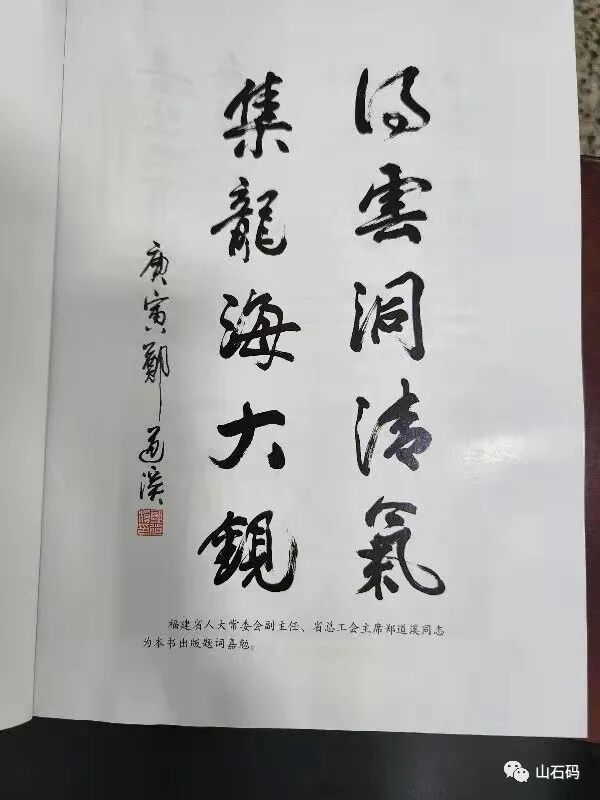 得雲洞清氣
集龍海大觀
庚寅鄭道溪
福建省人大常委会副主任、省总工会主席郑道溪同志
为本书出版题词嘉勉。
山石码